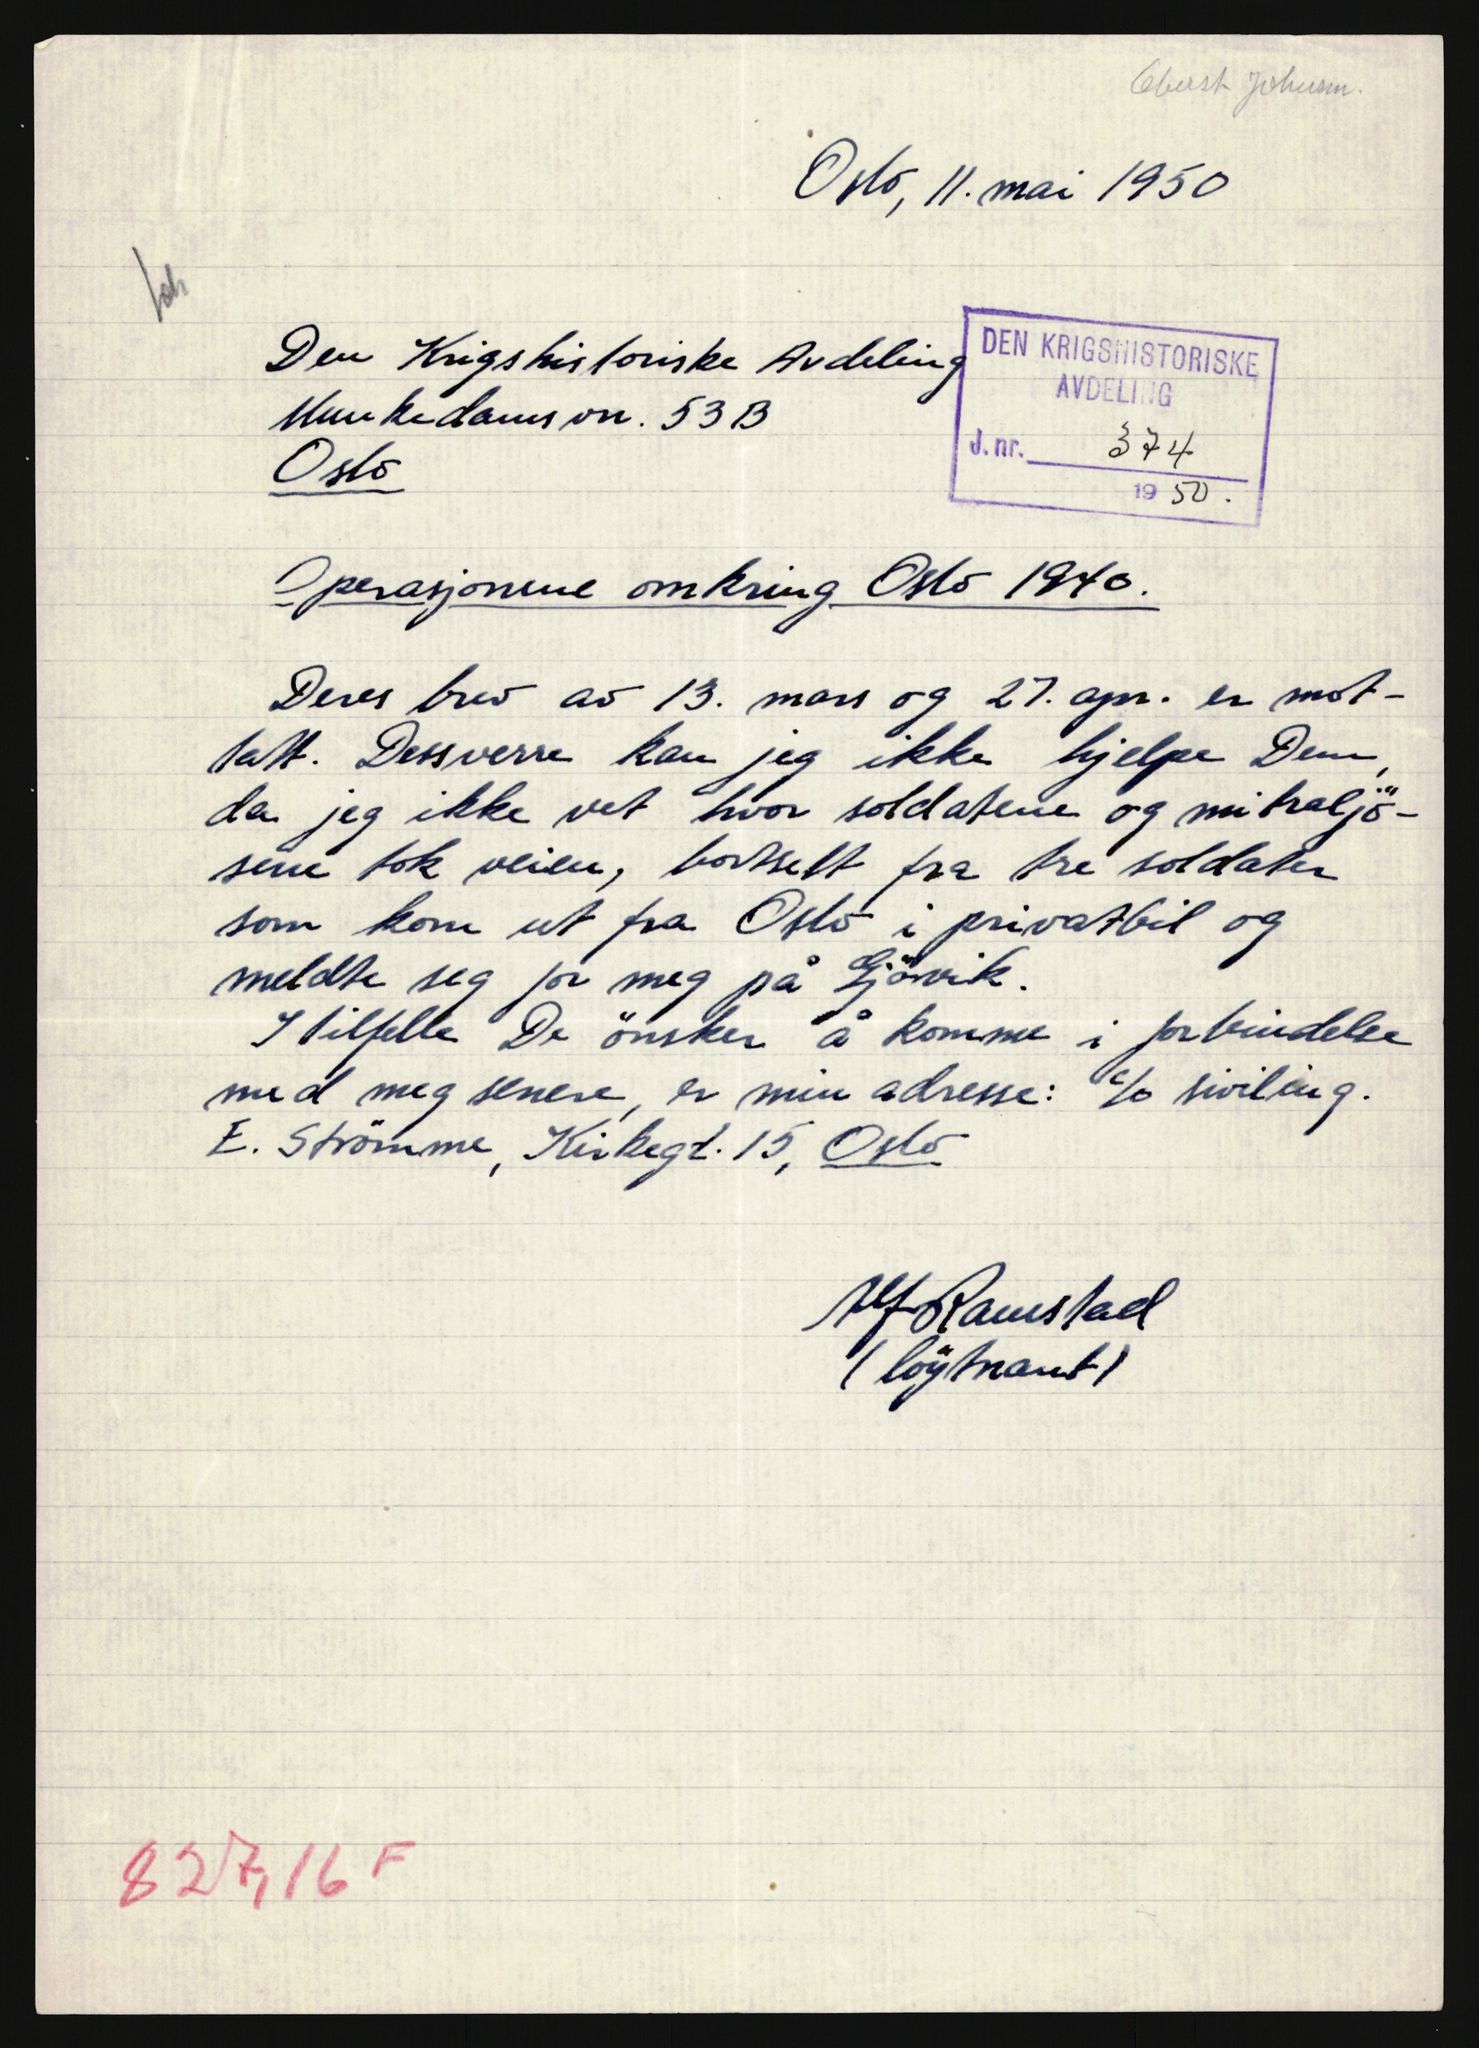 Oberst
Oslo, 11. mai 1950
Den Krigshistoriske Avdeling
Munkedamsvn. 53 B
Oslo
DEN KRIGSHISTORISKE
AVDELING
J. nr. 374
1950.
Operasjonene omkring Oslo 1940.
Deres brev av 13. mars og 27. apr. er mot-
tatt. Dessverre kan jeg ikke hjelpe Dem,
da jeg ikke vet hvor soldatene og mitraljö-
sene tok veien, bortsett fra tre soldater
som kom ut fra Oslo i privatbil og
meldte seg for meg på Gjövik.
I tilfelle De önsker å komme i forbindelse
med meg senere, er min adresse: c/o siviling.
E. Strömme, Kirkegt. 15, Oslo
Alf Ramstad
(löytnant)
827,16 F